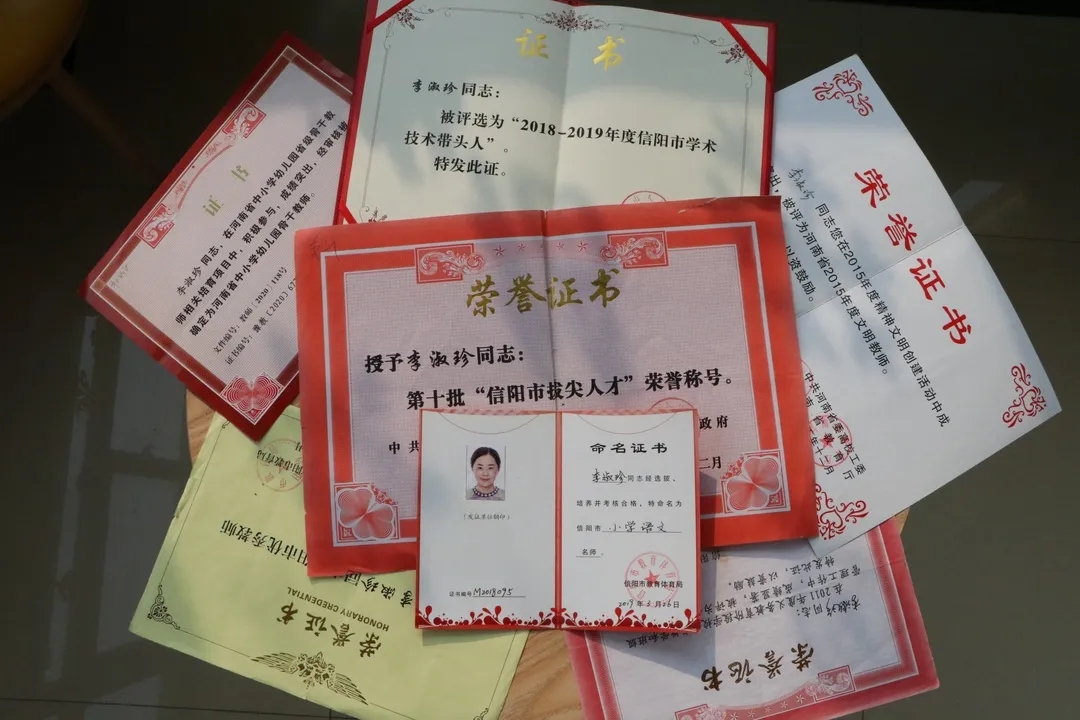 证书
李淑珍同志:
被评选为“2018-2019年度信阳市学术
技术带头人”。
特发此证。
证书
李淑珍同志,在河南省中小学幼儿园省级骨干教
师相关培育项目中,积极参与,成绩突出,经审核被
确定为河南省中小学幼儿园骨干教师。
文件编号:教师〔2020〕118号
证书编号:豫教〔2020〕67
荣誉证书
李淑珍 同志您在2015年度精神文明创建活动中成
出,被评为河南省2015年度文明教师。
以资鼓励。
中共河南省委高校工委
教育厅
年十二月
荣誉证书
授予李淑珍同志:
第十批“信阳市拔尖人才”荣誉称号。
中共
政府
二月
(发证单位钢印)
证书编号 M2018095
命名证书
李淑珍同志经选拔、
培养并考核合格,特命名为
信阳市 小学语文
名师。
信阳市教育体育局
2019年3月26日
荣誉证书
HONORARY CREDENTIAL
李淑珍同
阳市优秀教师
阳市教育局
荣誉证书
李淑珍同志:
在2011年度义务教育阶段学校
管理工作中,成绩显著,被评为
特发此证,以资鼓励。